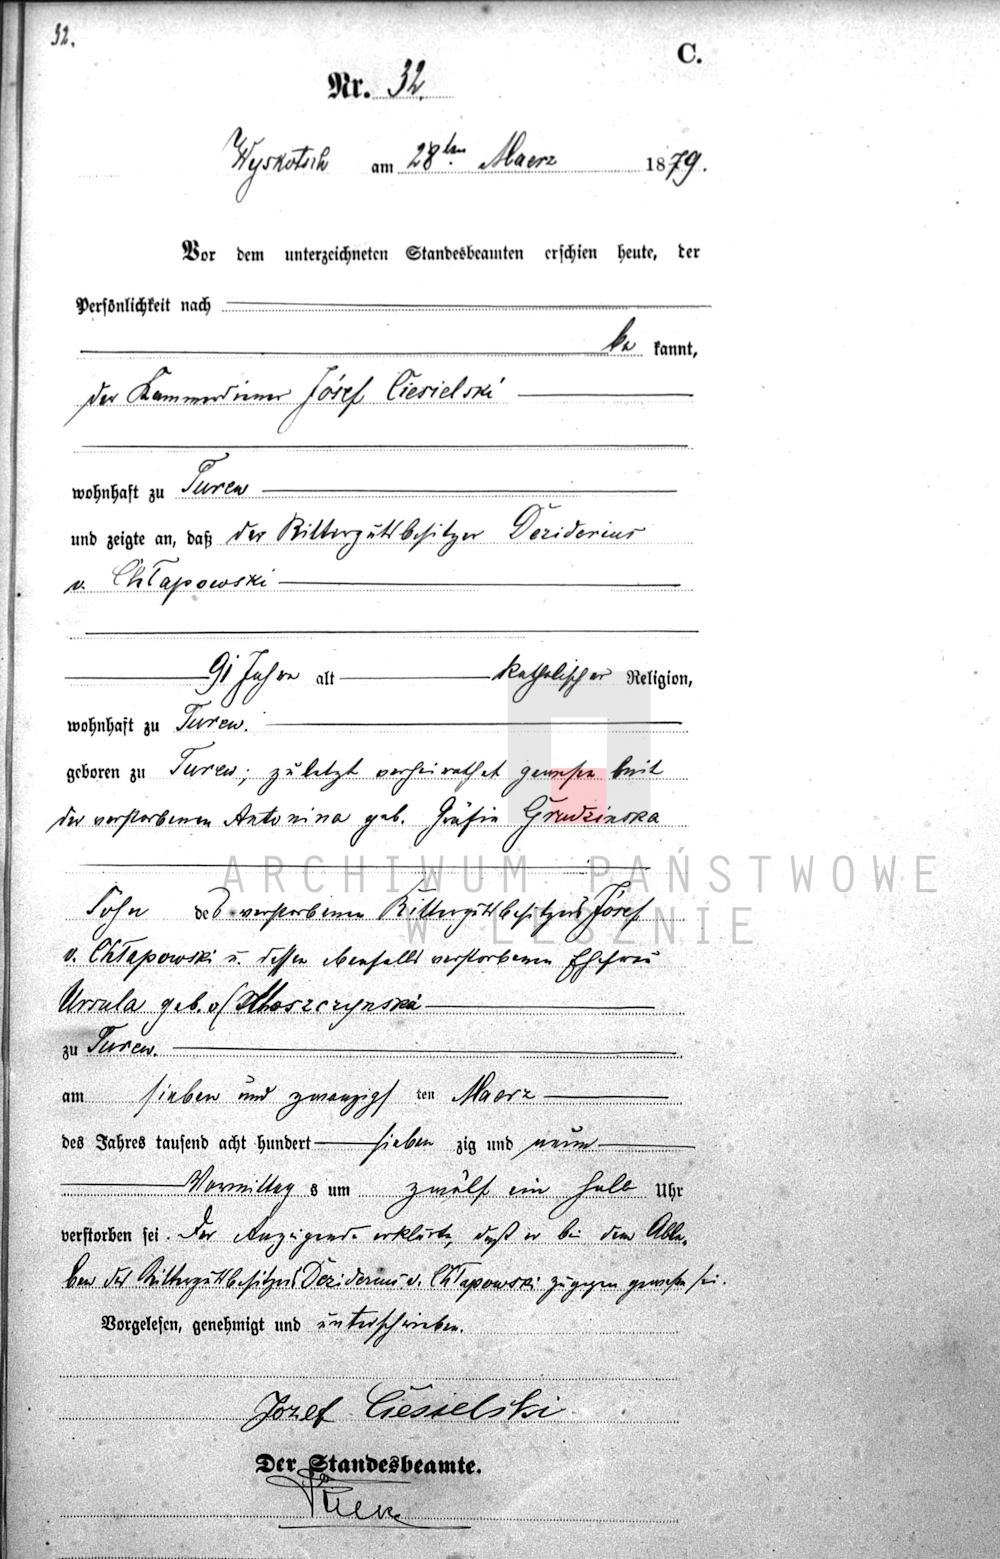 32.
C.
Nr. 32.
Wyskotsch am 28ten Maerz 1879.
Vor dem unterzeichneten Standesbeamten erschien heute, der
Persönlichkeit nach
be kannt,
der Kammerdiener Józef Ciesielski
wohnhaft zu Turew
und zeigte an, daß der Rittergutsbesitzer Deziderius
v. Chłapowski
91 Jahre alt katholischer Religion,
wohnhaft zu Turew.
geboren zu Turew; zuletzt verheirathet gewesen mit
der verstorbenen Antonina geb. Gräfin Grudzinska
ARCHIWUM PAŃSTWOWE
W LESZNIE
Sohn des verstorbenen Rittergutsbesitzers Józef
v. Chłapowski u. dessen ebenfalls verstorbenen Ehefrau
Ursula geb. v. Moszczynska
zu Turew.
am sieben und zwanzigsten Maerz
des Jahres tausend acht hundert sieben zig und neun
Vormittags um zwölf ein halb Uhr
verstorben sei. Der Anzeigende erklärte, daß er bei dem Able-
ben des Rittergutsbesitzers Deziderius v. Chłapowski zugegen gewesen sei.
Vorgelesen, genehmigt und unterschrieben.
Jozef Ciesielski
Der Standesbeamte.